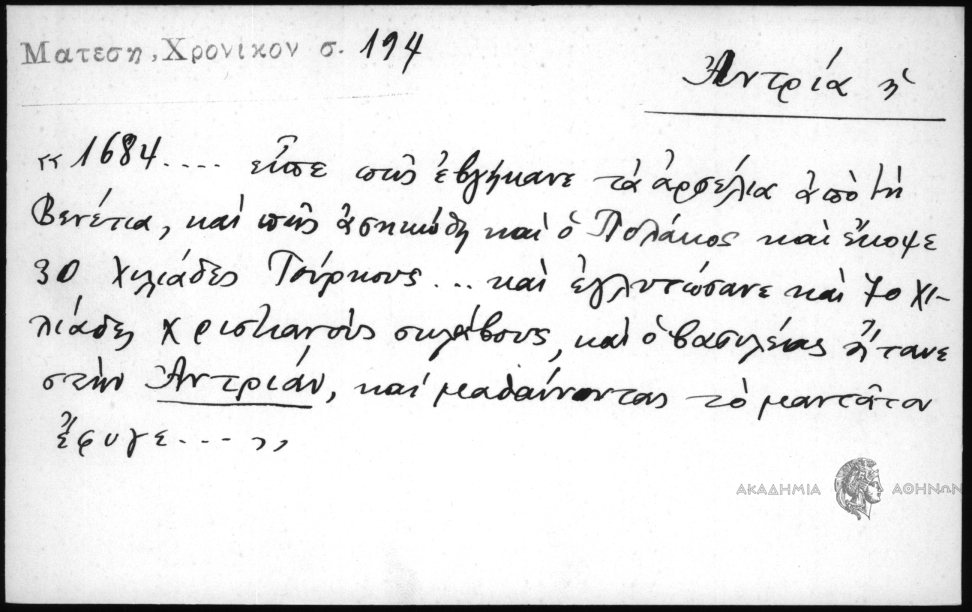 Ματεση, Χρονικον σ. 194
Ἀντρία ἡ
« 1684 .... εἶπε πῶς ἐβγήκανε τὰ ἀρσέλια ἀπὸ τὴ
Βενέτια, καὶ πῶς ἀσηκώθη καὶ ὁ Πολάκος καὶ ἔκοψε
30 χιλιάδες Τούρκους ... καὶ ἐγλυτώσανε καὶ 70 χι-
λιάδες χριστιανοὺς σκλάβους, καὶ ὁ βασιλέας ἤτανε
στὴν Ἀντριάν, καὶ μαθαίνοντας τὸ μαντᾶτον
ἔφυγε ... »
ΑΚΑΔΗΜΙΑ ΑΘΗΝΩΝ